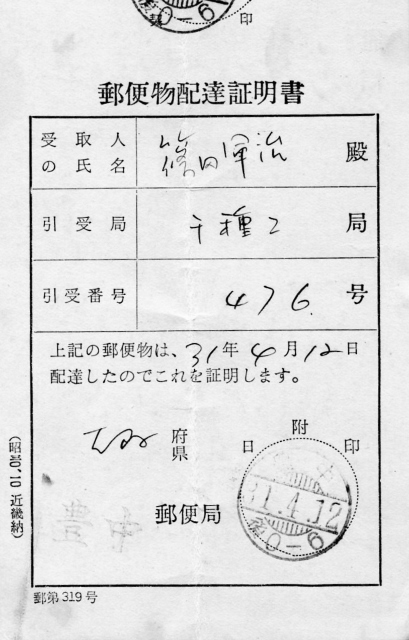 印
郵便物配達証明書
受取人の氏名 篠田軍治 殿
引受局 千種2 局
引受番号 476 号
上記の郵便物は、31年4月12日
配達したのでこれを証明します。
府県
日附印
31.4.12
后0-6
郵便局
豊中
(昭30.10 近畿納)
郵第319号